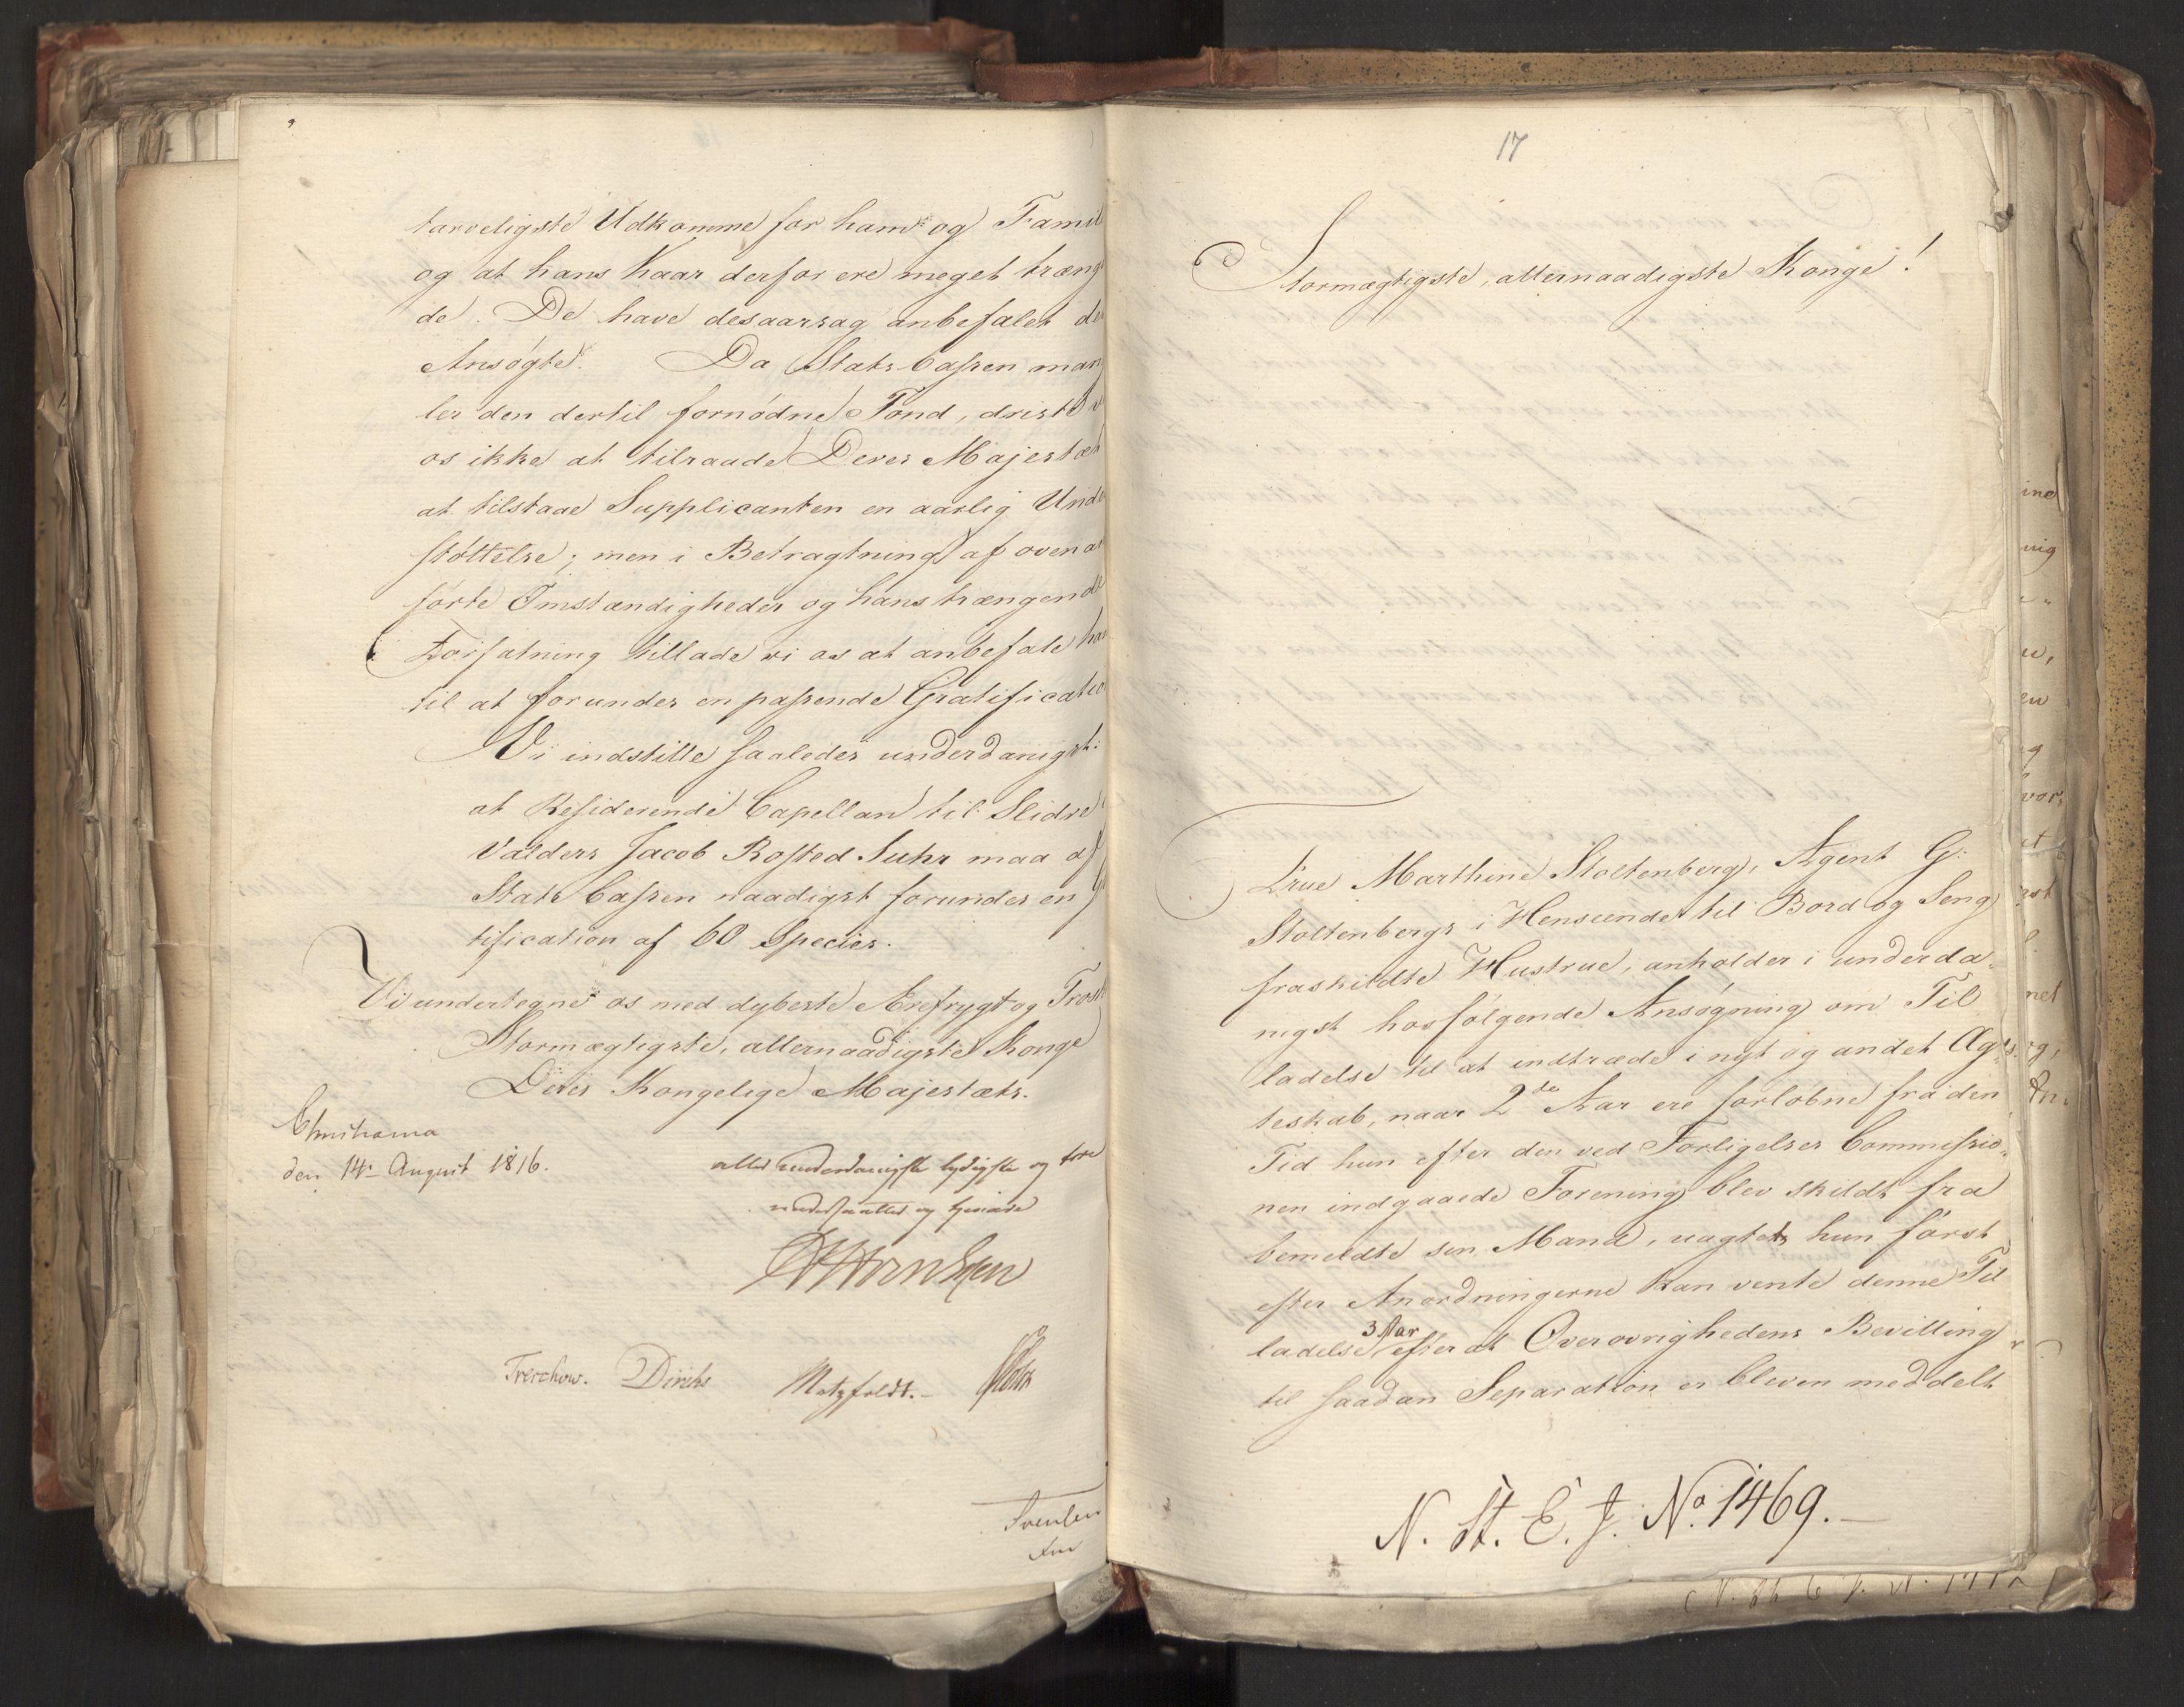 tarveligste Udkomme for ham og Famil
og at hans Kaar derfor ere meget træng
de. De have desaarsag anbefalet de
Ansøgte. Da Stats Cassen man
ler den dertil fornødne Fond, driste v
os ikke at tilraade Deres Majestæt
at tilstaae Supplicanten en aarlig Unde
støttelse; men i Betragtning af oven an
førte Omstændigheder og hans trængende
Forfatning tillade vi os at anbefale ham
til at forundes en passende Gratification
Vi indstille saaledes underdanigst:
at Residerende Capellan til Slidre
Valders Jacob Rosted Suhr maa af
Stats Cassen naadigst forundes en G
tification af 60 Species.
Vi undertegne os med dybeste Ærefrygt og Trosk
Stormægtigste, allernaadigste Konge
Deres Kongelige Majestæts.
Christiania
den 14. August 1816.
allerunderdanigste lydigste og troe
undersaatter og tjenere
Treschow. Diriks Motzfeldt.
17
Stormægtigste, allernaadigste Konge!
Frue Marthine Stoltenberg, Agent G:
Stoltenbergs i Henseende til Bord og Seng
fraskildte Hustrue, anholder i underda-
nigst hosfølgende Ansøgning om Til
ladelse til at indtræde i nyt og andet Æg-
teskab, naar 2de Aar ere forløbne fra den
Tid hun efter den ved Forligelses Commissio-
nen indgaaede Forening blev skildt fra
bemeldte sin Mand, uagtet hun først
efter Anordningerne kan vente denne Til
ladelse 3 Aar efter at Overøvrighedens Bevilling
til saadan Separation er bleven meddelt
N. St. E. J. No. 1469.